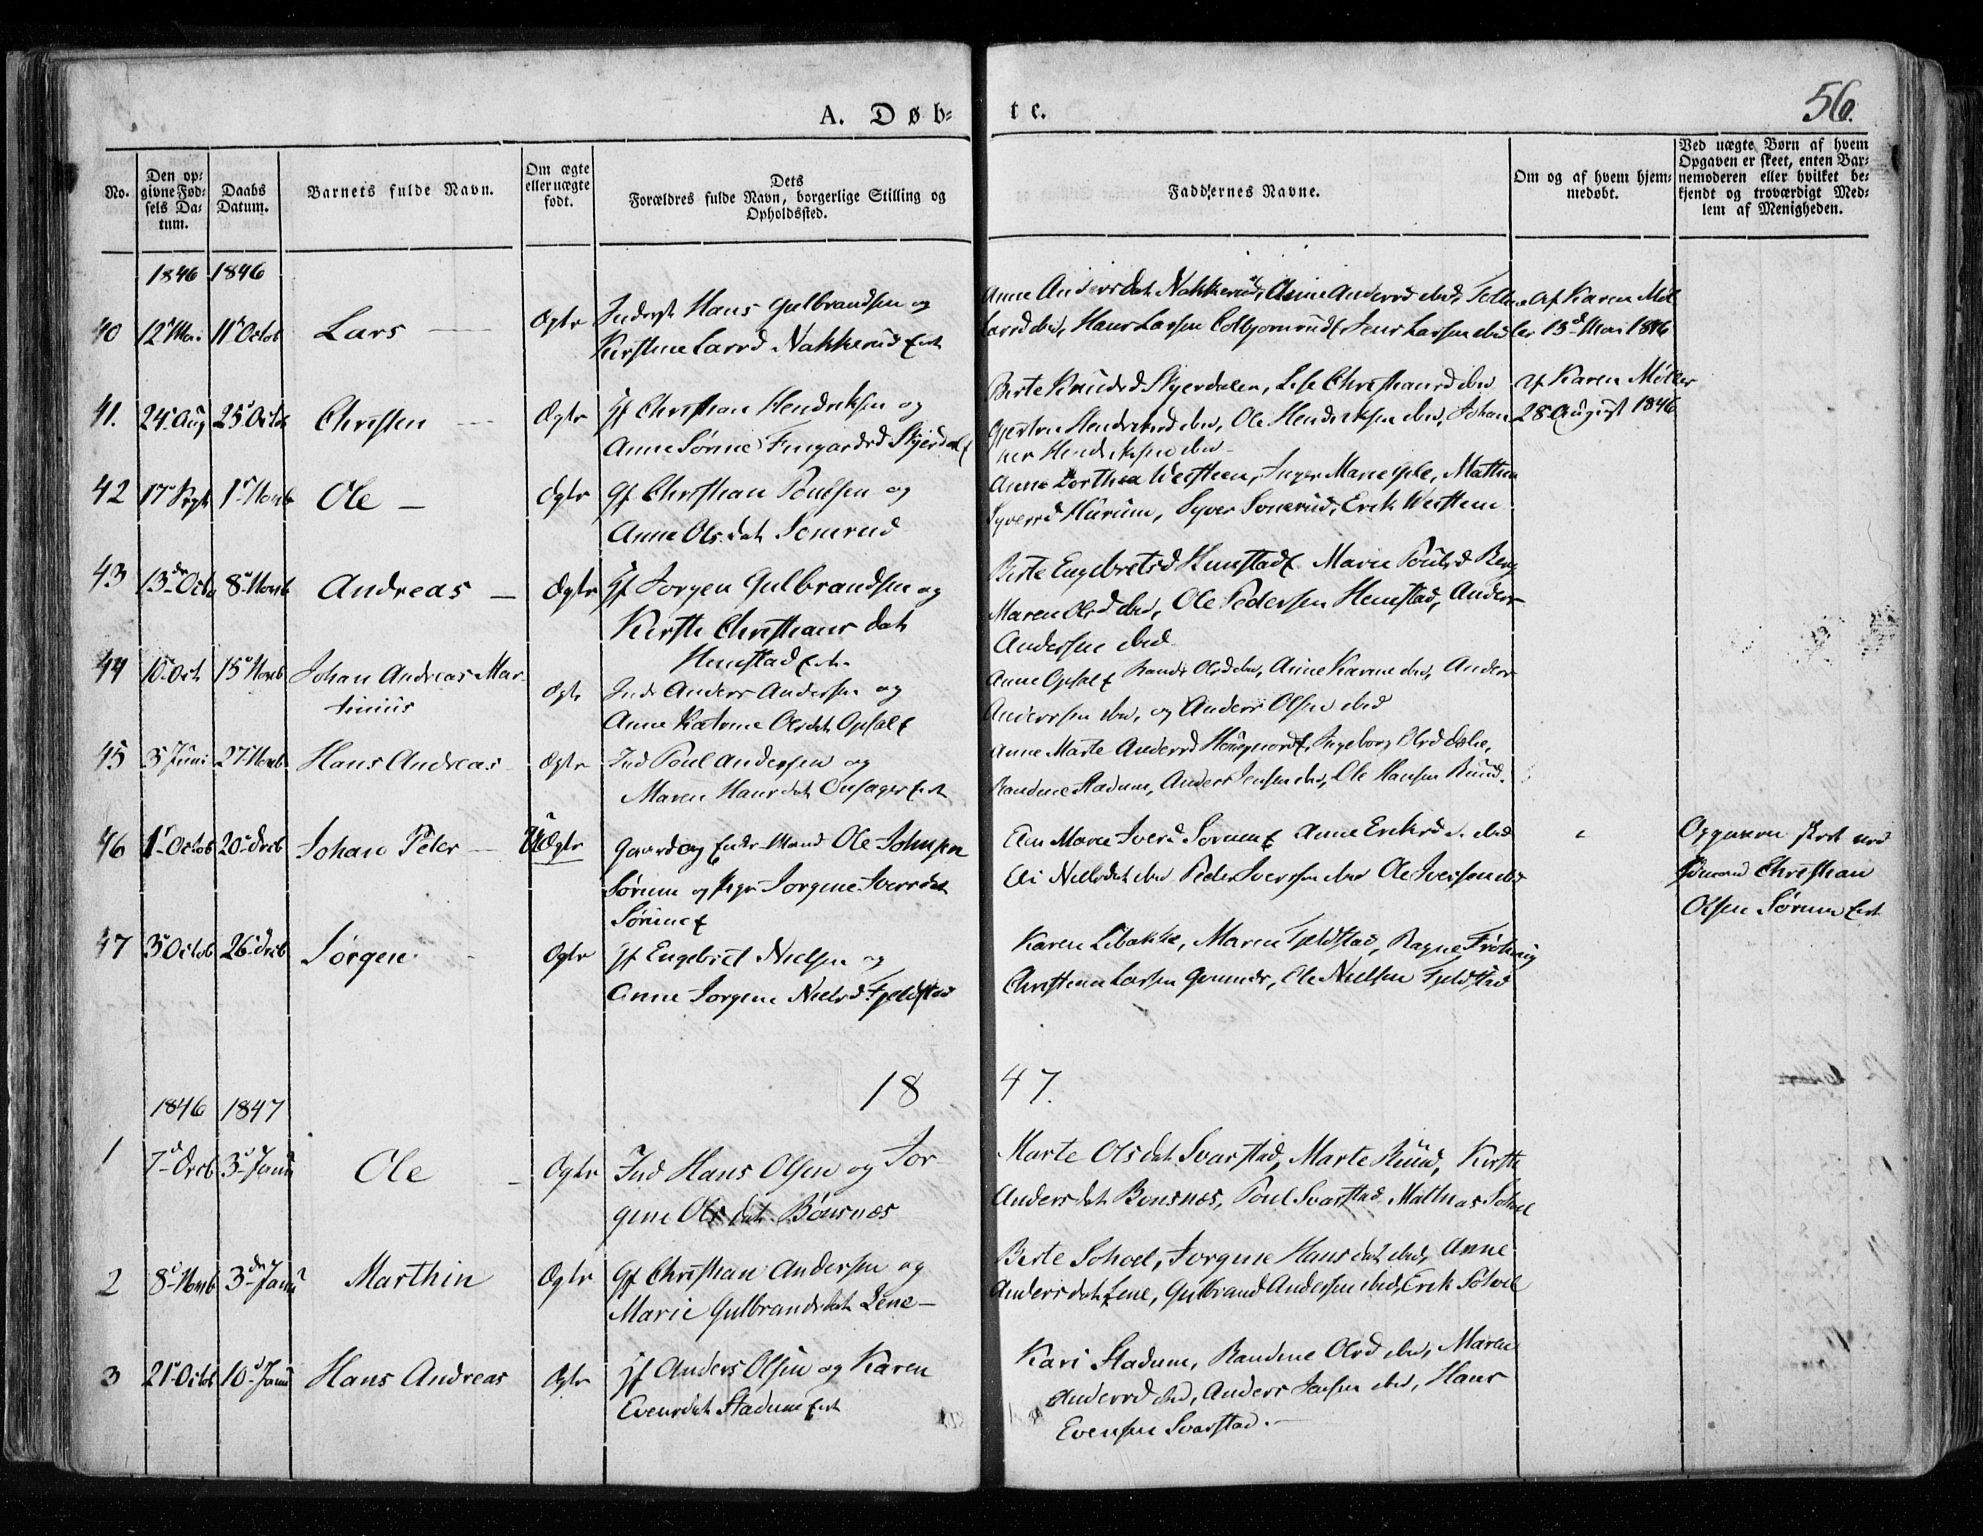 A. Døb=
te.
56.
No.
Den op=
givne Fød=
sels Da=
tum.
Daabs
Datum.
Barnets fulde Navn.
Om ægte
eller uægte
født.
Dets
Forældres fulde Navn, borgerlige Stilling og
Opholdssted.
Faddernes Navne.
Om og af hvem hjem=
medøbt.
Ved uægte Børn af hvem
Opgaven er skeet, enten Bar=
nemoderen eller hvilket be=
kjendt og troværdigt Med=
lem af Menigheden.
1846 1846
40 12 Mai 11 Octob Lars Ægte Hans Gulbrandsen og
Kirstine Larsd Nakkerud
Anne Andersdat Nakkerud, Anne Andersd ibid,
Larsd ibid, Hans Larsen Colbjørnrud, Jens Larsen ibid
Af Karen Møl
ler 13 Mai 1846
41. 24 Aug 25 Octob Christen Ægte Christian Hendriksen og
Anne Sørine
Berte Knudsd Skjerdalen, Lise Christiansd ibid
Hendriksd ibid, Ole Hendriksen ibid, Johan
nes Hendriksen ibid
Af Karen Møller
28 August 1846
42 17 Sept 1 Novb Ole Ægte Gf Christian Poulsen og
Anne Olsdat Sonerud
Anne Dorthea Westeen, Mathea
Syversd Hurum, Syver Sonerud, Erik Westeen
43 13 Octb 8 Novb Andreas Ægte Jørgen Gulbrandsen og
Kirsti Christians dat
Hemstad
Berte Engebretsd Hemstad Marie Poulsd Berg
Maren Olsd ibid, Ole Pedersen Hemstad, Anders
Andersen ibid
44 10 Oct 15 Novb Johan Andreas Mar=
tinius
Ægte Ind Anders Andersen og
Anne Olsdat Opsal
Anne Opsal Randi Olsd ibid, Anne Karine ibid, Anders
Andersen ibid, og Anders Olsen ibid
45 3 Juni 27 Novb Hans Andreas Ægte Ind Poul Andersen og
Maren Hansdat Onsager
Anne Marte Andersd Ingeborg Olsd
Randine Stadum, Anders Jensen ibid, Ole Hansen Ruud.
46 1 Octob 20 Decb Johan Peter Uægte Gaard og Mand Ole Johnsen
Sørum og Pige Jørgine Iversdat
Sørum
Marie Iversd Sørum Anne Eriksd ibid
Eli Nielsdat ibid Peder Iversen ibid Ole Iversen ibid
Opgaven skeet ved
Christian
Olsen Sørum
47 3 Octob 26 Decb Jørgen Ægte Engebret Nielsen og
Anne Jørgine Nielsd Fjeldstad
Karen Libakke, Maren Fjeldstad, Ragne Frøhaug
Christian Larsen Ole Nielsen Fjeldstad
18 47.
1846 1847
1 7 Decb 3 Janu Ole Ægte Ind Hans Olsen og Jør=
gine Olsdat Bønsnæs
Marte Olsdat Svarstad, Marte Ruud, Kirsti
Andersdat Bønsnæs, Poul Svarstad Mathias Sohol
2 8 Novb 3 Janu Marthin Ægte Gf Christian Andersen og
Marie Gulbrandsdat Lene
Berte Sohoel, Jørgine Hansdat ibid, Anne
Andersdat Lene, Gulbrand Andersen ibid, Erik Sohoel
3 21 Octob 10 Janu Hans Andreas Ægte Anders Olsen og Karen
Evensdat Stadum
Kari Stadum, Randine Olsd ibid, Maren
Andersd ibid, Anders Jensen ibid, Hans
Evensen Svarstad.